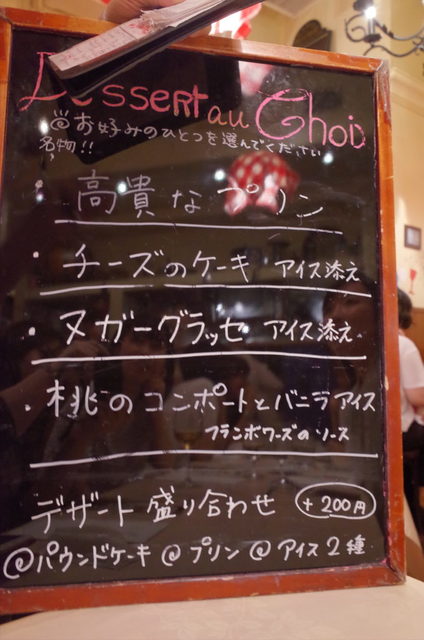 Dessert au Choix
お好みのひとつを選んでください
名物!!
・高貴なプリン
・チーズのケーキ アイス添え
・ヌガーグラッセ アイス添え
・桃のコンポートとバニラアイス
フランボワーズのソース
デザート盛り合わせ +200円
@パウンドケーキ @プリン @アイス2種